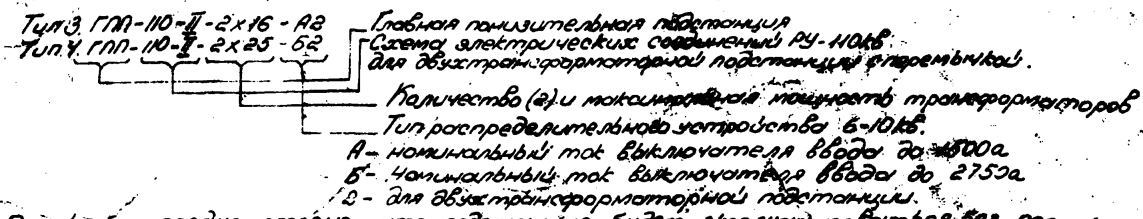 Тип 3. ГПП-110-II-2х16-А2
Тип 4. ГПП-110-II-2х25-Б2
Главная понизительная подстанция
Схема электрических соединений РУ-110кв.
для двухтрансформаторной подстанции с перемычкой.
Количество (2) и максимальная мощность трансформаторов
Тип распределительного устройства 6-10кв.
А - номинальный ток выключателя ввода до 1500а
Б - номинальный ток выключателя ввода до 2750а
2 - для двухтрансформаторной подстанции.